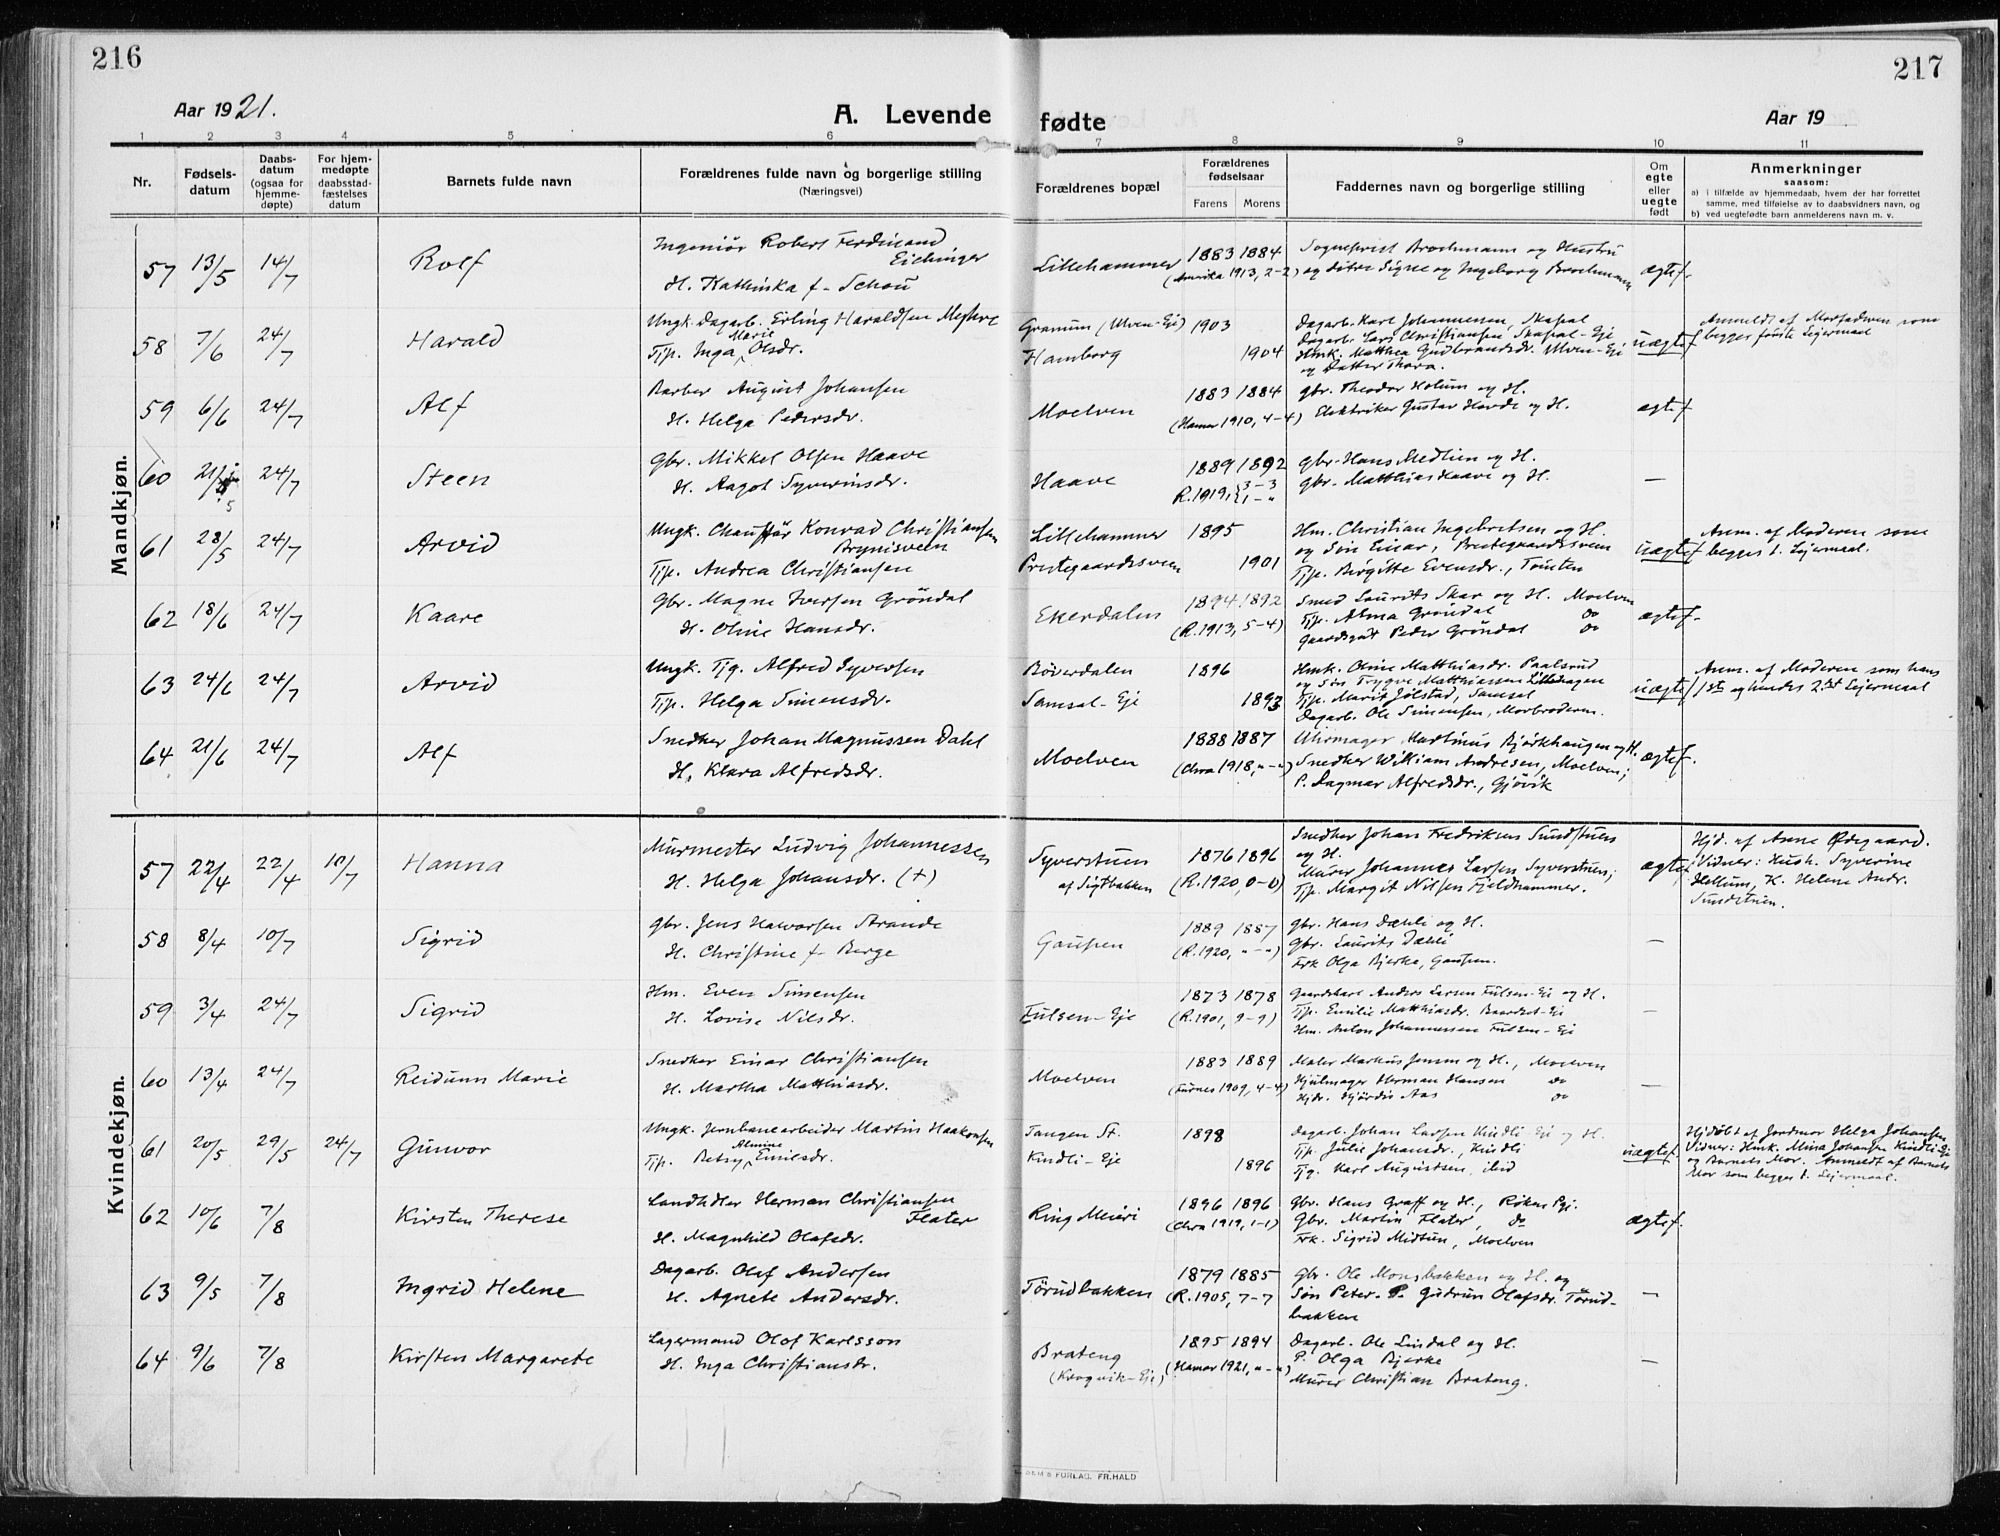 216
217
Aar 1921.
A. Levende fødte
Aar 19
1 2 3 4 5 6 7 8 9 10 11
Nr.
Fødsels-
datum
Daabs-
datum
(ogsaa for
hjemme-
døpte)
For hjem-
medøpte
daabsstad-
fæstelses
datum
Barnets fulde navn
Forældrenes fulde navn og borgerlige stilling
(Næringsvei)
Forældrenes bopæl
Forældrenes
fødselsaar
Farens Morens
Faddernes navn og borgerlige stilling
Om
egte
eller
uegte
født
Anmerkninger
saasom:
a) i tilfælde av hjemmedaab, hvem der har forrettet
samme, med tilføielse av to daabsvidners navn, og
b) ved uegtefødte barn anmelderens navn m. v.
Mandkjøn.
57 13/5 14/7 Rolf
Ingeniör Robert Ferdinand
Eichinger
H. Kathinka f. Schou
Lillehammer
1883 1884
(Amerika 1913, 2-2)
Sogneprest Brochmann og Hustru
og døtre Signe og Ingeborg Brochmann
ægtef.
58 7/6 24/7 Harald
Ungk. Dagarb. Erling Haraldsen
Tjp. Inga Marie Olsdr.
Granum (Ulven-Eje)
Hamborg
1903
1904
Dagarb. Karl Johannesen, Skapal
Dagarb. Lars Christiansen, Skapal-Eje
Hmk. Matthea Gudbrandsdr. Ulven-Eje
og Datter Thora.
uægtef
Anmeldt af Morfaderen som
begges første Lejermaal
59 6/6 24/7 Alf
Barber August Johansen
H. Helga Pedersdr.
Moelven
1883 1884
(Hamar 1910, 4-4)
gbr. Theodor Holum og H.
Elektriker Gustav Hovde og H.
ægtef
60 21/5 24/7 Steen
Gbr. Mikkel Olsen Haave
H. Aagot Syverinsdr.
Haave
1889 1892
R. 1919, {3-3
{1-"
Gbr. Hans Medlien og H.
gbr. Matthias Haave og H.
—
61 28/5 24/7 Arvid
Ungk. Chauffør Konrad Christiansen
Brynisveen
Tjp. Andrea Christiansen
Lillehammer
Prestegaardsveen
1895
1901
Hm. Christian Ingebretsen og H.
og Søn Einar, Prestegaardsveen
Tjp. Birgitte Evensdr., Tomten
uægtef
Anm. af Moderen som
begges 1. Lejermaal.
62 18/6 24/7 Kaare
Gbr. Magne Iversen Gröndal
H. Oline Hansdr.
Ekerdalen
1894 1892
(R. 1913, 5-4)
Smed Laurits Skar og H. Moelven
Tjp. Alma Gröndal do
Gaardsgut Peder Gröndal do
ægtef.
63 24/6 24/7 Arvid
Ungk. Tjg. Alfred Syversen
Tjp. Helga Simensdr.
Böverdalen
Samsal-Eje
1896
1893
Hmk. Oline Matthiasdr. Paalsrud
og Søn Trygve Matthiassen
Tjp. Marit Jølstad, Samsal
Dagarb. Ole Simensen, Morbroderen.
uægtef
Anm. af Moderen som hans
1ste og hendes 2det Lejermaal
64 21/6 24/7 Alf
Snedker Johan Magnussen Dahl
H. Klara Alfredsdr.
Moelven
1888 1887
(Chra 1918, "-")
Uhrmager Martinus Bjørkhaugen og H.
Snedker William Andresen, Moelven;
P. Dagmar Alfredsdr., Gjøvik
ægtef.
Kvindekjøn.
57 22/4 22/4 10/7 Hanna
Murmester Ludvig Johannessen
H. Helga Johansdr. (+)
Syverstuen
af Sigtbakken
1876 1896
(R. 1920, 0-0)
Snedker Johan Fredriksen Sundstuen
og H.
Murer Johannes Larsen Syverstuen;
Tjp. Margit Nilsen Fjeldhammer.
ægtef
Hjd. af Anne Ødegaard.
Vidner: Hush. Syverine
Hellum, K. Helene Andr.
Sundstuen.
58 8/4 10/7 Sigrid
gbr. Jens Halvorsen Strande
H. Christine f. Berge
Gaupen
1889 1887
(R. 1920, "-")
gbr. Hans Dæhli og H.
Gbr. Laurits Dæhli
Frk Olga Bjerke, Gaupen.
—
59 3/4 24/7 Sigrid
Hm. Even Simensen
H. Lovise Nilsdr.
Fulsen-Eje
1873 1878
(R. 1901, 9-9)
Gaardskarl Anders Larsen Fulsen-Eje og H.
Tjp. Emilie Matthiasdr. Baardset-Eje
Hm. Anton Johannessen Fulsen-Eje
—
60 13/4 24/7 Reidunn Marie
Snedker Einar Christiansen
H. Martha Matthiasdr.
Moelven
1883 1889
(Furnes 1909, 4-4)
Maler Markus Jensen og H., Moelven
Hjulmager Herman Hansen do
Hjdr. Hjördis Aas do
—
61 20/5 29/5 24/7 Gunvor
Ungk. Jernbanearbeider Martin Haakonsen
Tjp. Betsy Almine Emilsdr.
Tangen St.
Kindli-Eje
1898
1896
Dagarb. Johan Larsen Kindli Eje og H.
Tjp. Julie Johansdr., Kindli
Tjg. Karl Augustsen, ibid
uægtef
Hjdöbt af Jordmor Helga Johansen
Vidner: Hmk. Mina Johansen Kindli-Eje
og Barnets Mor. Anmeldt af Barnets
Mor som begges 1. Lejermaal.
62 10/6 7/8 Kirsten Therese
Landhdler Herman Christiansen
Flater
H. Magnhild Olafsdr.
Ring Meieri
1896 1896
(Chra 1919, 1-1)
Gbr. Hans Graff og H.,
Gbr. Martin Flater, do
Frk. Sigrid Midtun, Moelven
ægtef.
63 9/5 7/8 Ingrid Helene
Dagarb. Olaf Andersen
H. Agnete Andersdr.
Törudbakken
1879 1885
(R. 1905, 7-7
Gbr. Ole Monsbakken og H. og
Søn Peter. P. Gudrun Olafsdr. Törud-
bakken
—
64 9/6 7/8 Kirsten Margarete
Lagermand Olof Karlsson
H. Inga Christiansdr.
Brateng
(Krogvik-Eje)
1895 1894
(Hamar 1921, "-")
Dagarb. Ole Lindal og H.
P. Olga Bjerke
Murer Christian Brateng.
—
FORLAG. FR. HALD